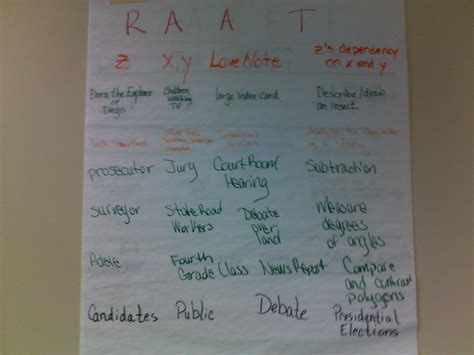 R A A T
z x,y Love Note z's dependency
on x and y
Dora the Explorer Children large index card Describe/draw
or Watching an insect.
Diego TV
prosecutor Jury Court Room Subtraction
Hearing
surveyor State Road Debate Measure
Workers over degrees
land of angles
Adele Fourth News Report Compare
Grade Class and contrast
polygons
Candidates Public Debate Presidential
Elections